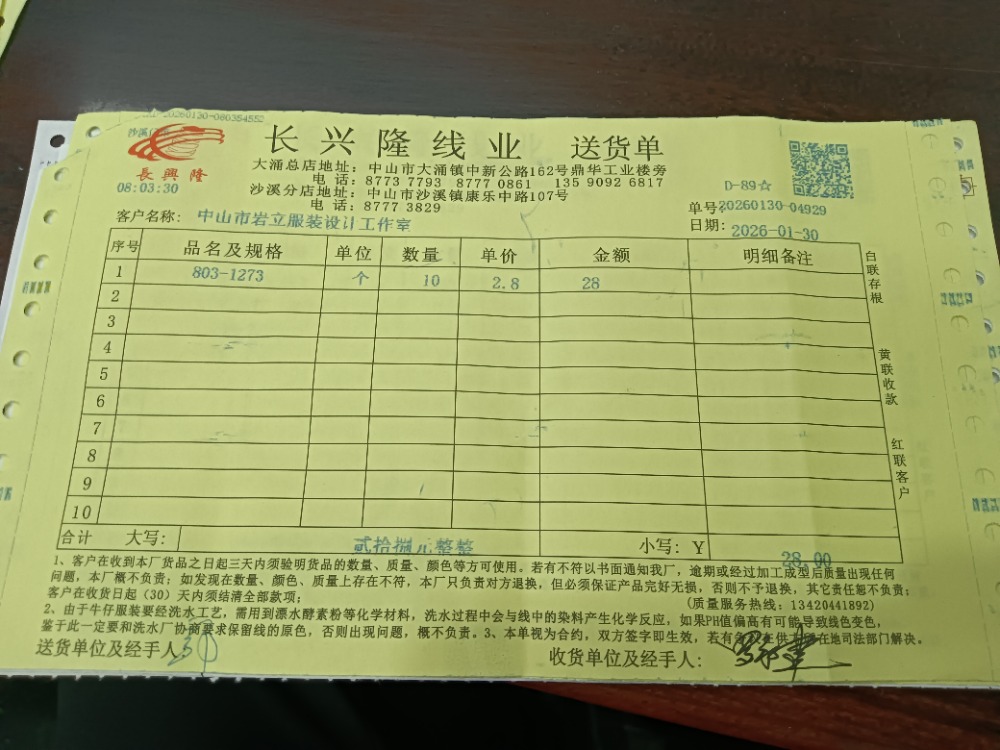 20260130-080354552
沙溪
长兴隆线业 送货单
長興隆
大涌总店地址：中山市大涌镇中新公路162号鼎华工业楼旁
电话：8773 7793 8777 0861 135 9092 6817
沙溪分店地址：中山市沙溪镇康乐中路107号
电话：8777 3829
08:03:30
D-89☆
单号:20260130-04929
客户名称：中山市岩立服装设计工作室
日期：2026-01-30
序号 品名及规格 单位 数量 单价 金额 明细备注
1 803-1273 个 10 2.8 28
2
3
4
5
6
7
8
9
10
白联存根
黄联收款
红联客户
合计 大写：贰拾捌元整整 小写：Y 28.00
1、客户在收到本厂货品之日起三天内须验明货品的数量、质量、颜色等方可使用。若有不符以书面通知我厂，逾期或经过加工成型后质量出现任何
问题，本厂概不负责；如发现在数量、颜色、质量上存在不符，本厂只负责对方退换，但必须保证产品完好无损，否则不予退换，其它责任恕不负责；
客户在收货日起（30）天内须结清全部款项；
（质量服务热线：13420441892）
2、由于牛仔服装要经洗水工艺，需用到漂水酵素粉等化学材料，洗水过程中会与线中的染料产生化学反应，如果PH值偏高有可能导致线色变色，
鉴于此一定要和洗水厂协商要求保留线的原色，否则出现问题，概不负责。3、本单视为合约，双方签字即生效，若有
在地司法部门解决。
送货单位及经手人：
收货单位及经手人：